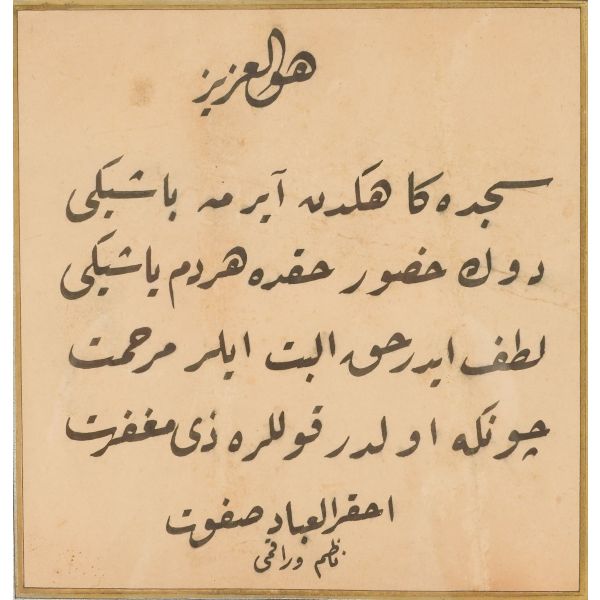 هو العزيز
سجده كا هكدن آيرمه باشيكى
دوك حضور حقده هردم ياشيكى
لطف ايدر حق البت ايلر مرحمت
چونكه اولدر قوللره ذى مغفرت
احقر العباد صفوت
ناظم وراقمى